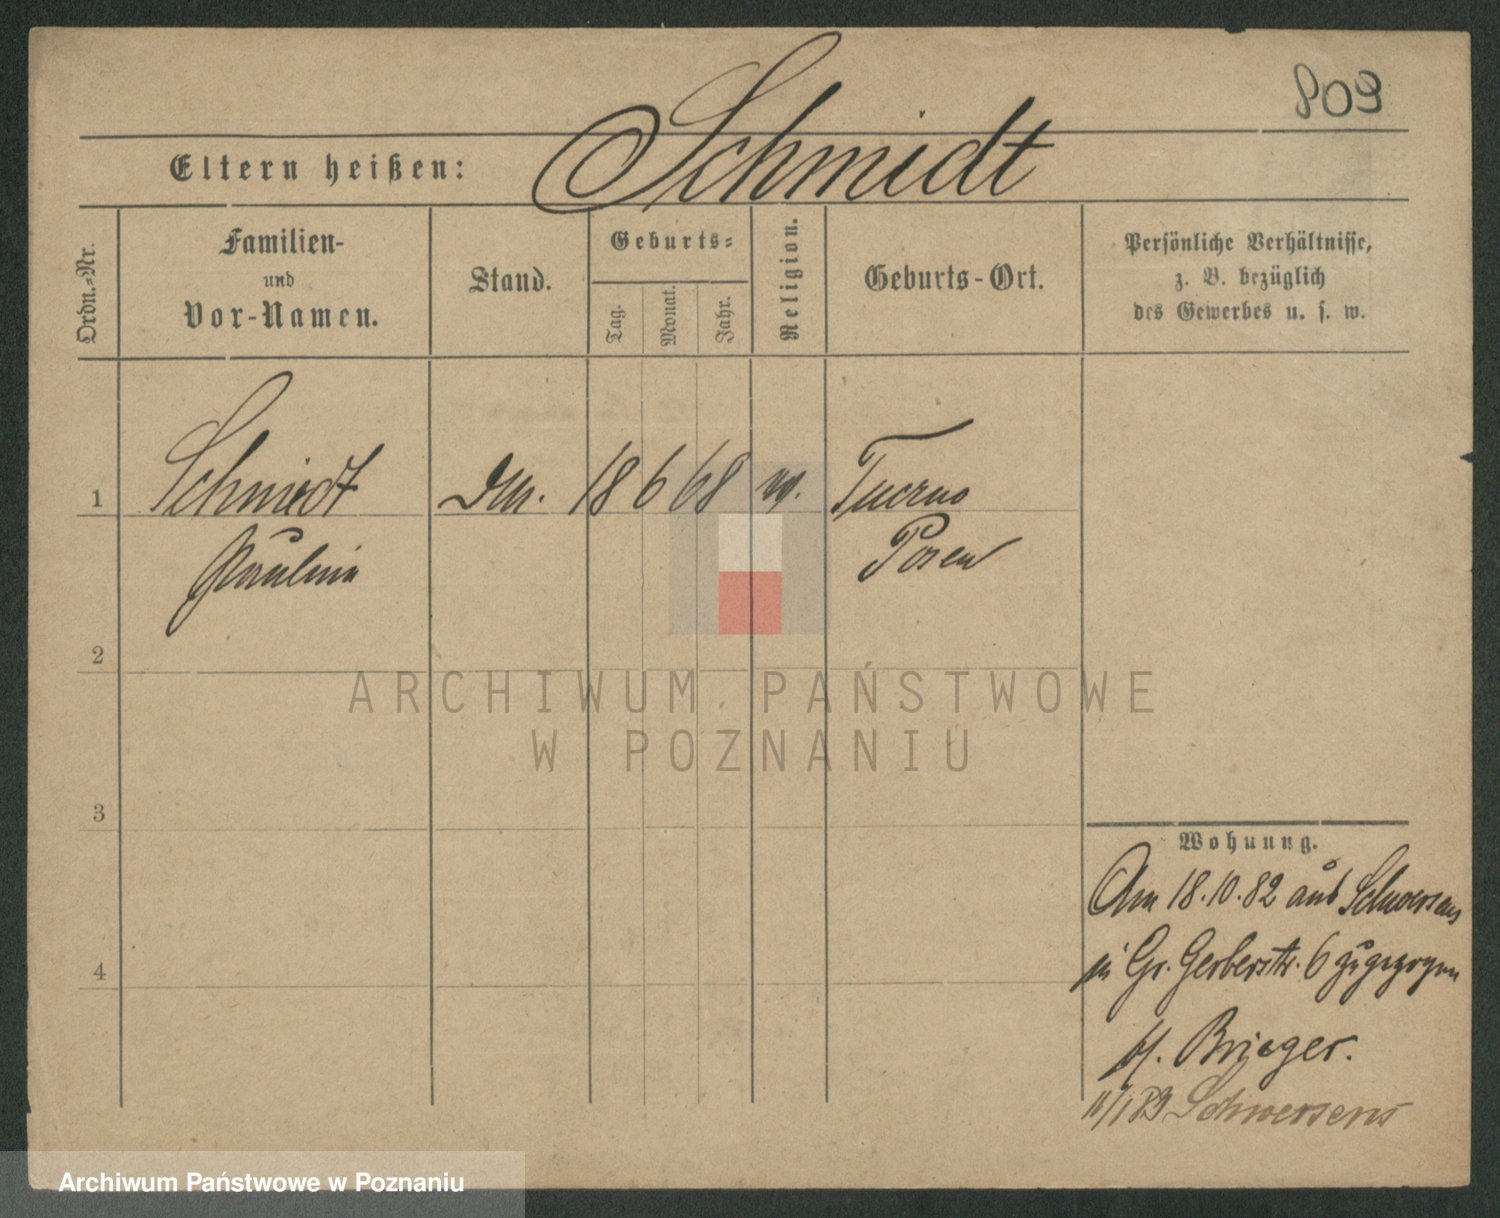 809
Schmidt
Eltern heißen:
Ordn.-Nr.
Familien-
und
Vor-Namen.
Stand.
Geburts-
Tag.
Monat.
Jahr.
Religion.
Geburts-Ort.
Persönliche Verhältnisse,
z. B. bezüglich
des Gewerbes u. s. w.
1 Schmidt 18 6 68 Tuczno
Paulina Posen
2
3
4
ARCHIWUM PAŃSTWOWE
W POZNANIU
Wohnung.
Am 18.10.82 aus Schwersenz
in Gr. Gerberstr. 6 zugezogen
Brieger.
11/1 83 Schwersenz
Archiwum Państwowe w Poznaniu